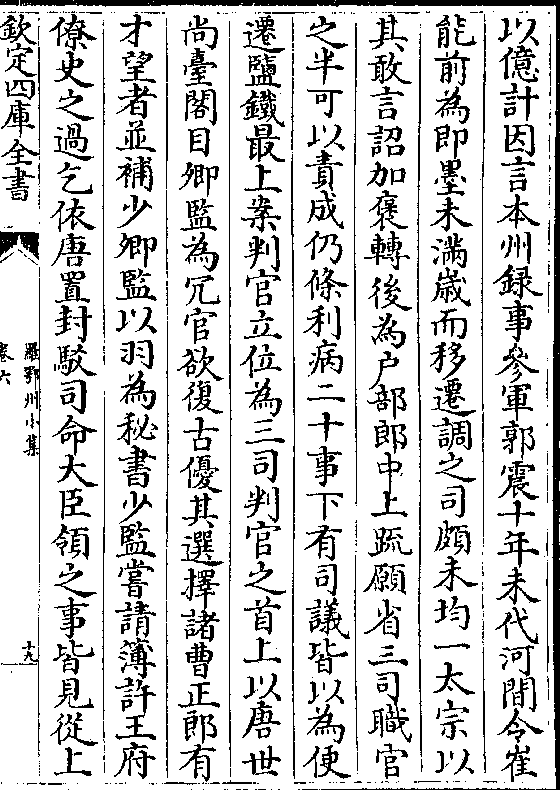 以億計因言本州録事參軍郭震十年未代河間令崔
能前為即墨未滿歲而移遷調之司頗未均一太宗以
其敢言詔加褒轉後為户部郎中上䟽願省三司職官
之半可以責成仍條利病二十事下有司議皆以為便
遷鹽鐵最上案判官立位為三司判官之首上以唐世
尚臺閣目卿監為冗官欲復古優其選擇諸曹正郎有
才望者並補少卿監以羽為秘書少監嘗請薄許王府
僚吏之過乞依唐置封駁司命大臣領之事皆見從上
欽定四庫全書
羅鄂州小集
卷六
十九